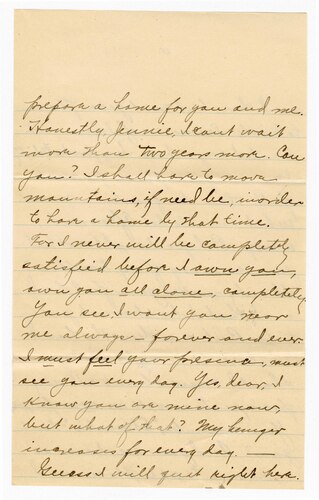 prepare a home for you and me.
Honestly Jennie, I cant wait
more than two years more. Can
you? I shall have to move
mountains, if need be, in order
to have a home by that time.
For I never will be completely
satisfied before I own you,
own you all alone, completely.
You see I want you near
me always - forever and ever.
I must feel your presence, must
see you every day. Yes, dear, I
know you are mine now,
but what of that? My hunger
increases for every day. —
Guess I will quit right here.